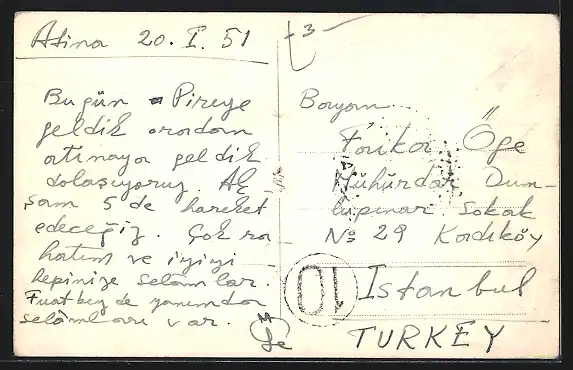 Atina 20. I. 51
Bugün Pireye
geldik oradan
atinaya geldik
dolaşıyoruz. Ak-
şam 5 de hareket
edeceğiz. Çok ra
hatım ve iyiyi
hepinize selâmlar.
Fuat bey de yanımda
selâmları var.
Öge
-3-
Bayan
Faika Öge
Mühürdar Dum-
lupınar Sokak
No 29 Kadıköy
10
Istanbul
TURKEY